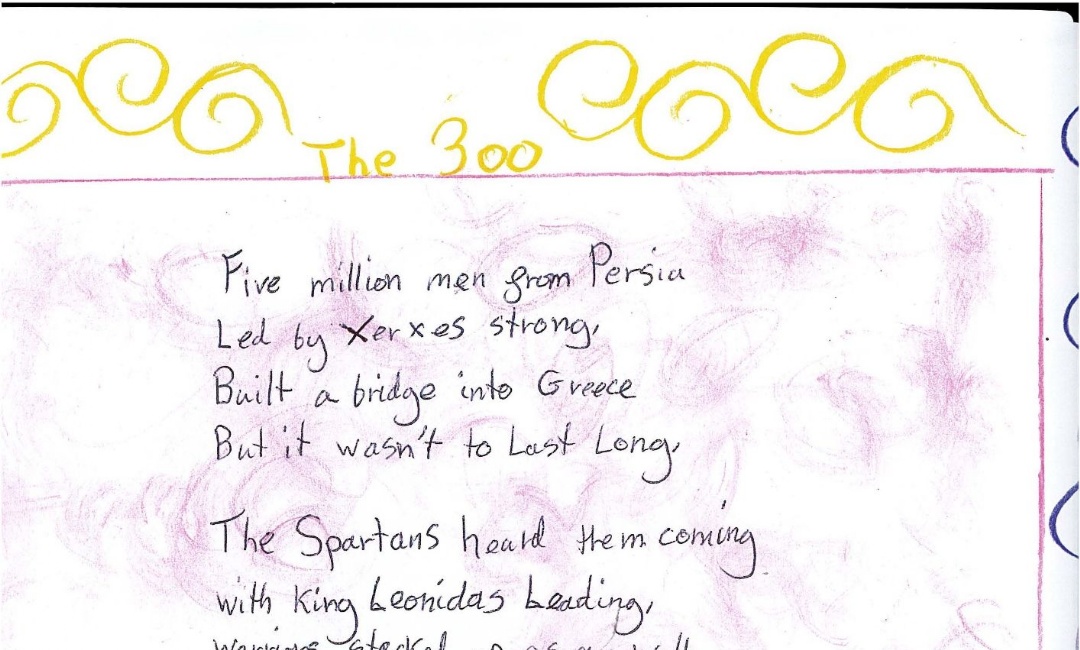 The 300
Five million men from Persia
Led by Xerxes strong,
Built a bridge into Greece
But it wasn't to Last Long,
The Spartans heard them coming
with King Leonidas Leading,